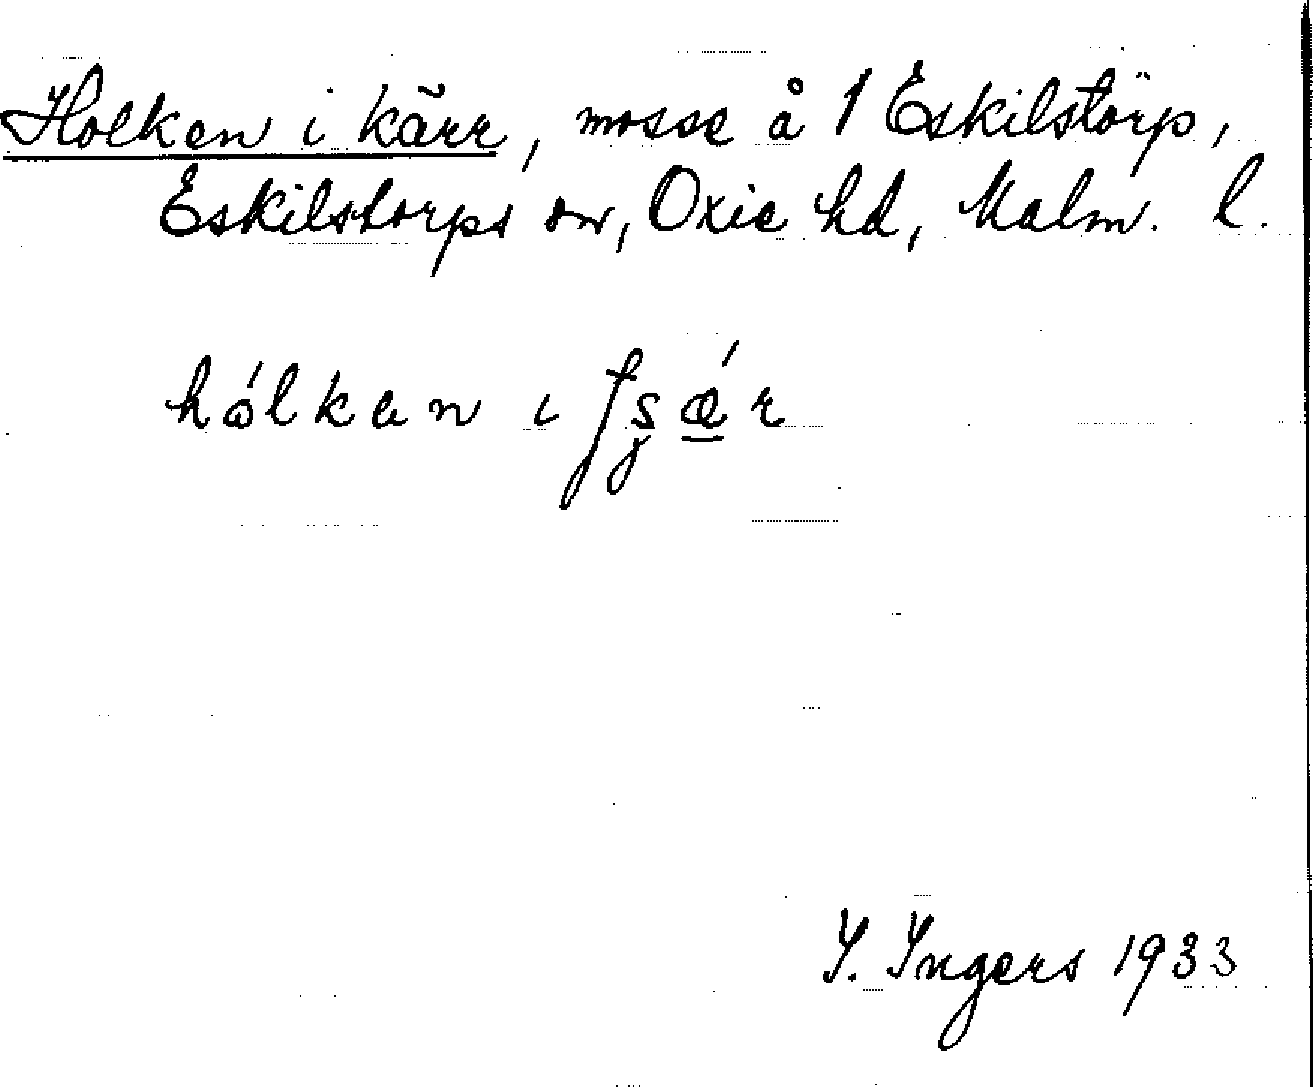 Holken i kärr, mosse å 1 Eskilstorp,
Eskilstorps sn, Oxie hd, Malm. l.
hólkan ı
I. Ingers 1933